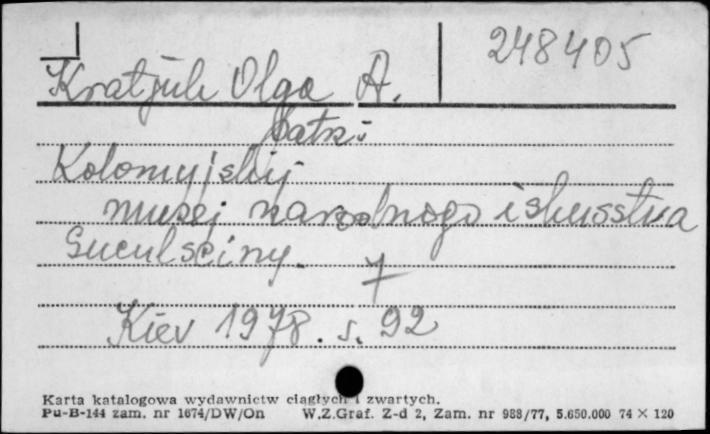 248405
Kratjuk Olga A.
patrz:
Kolomyjskij
muzej narodnogo iskusstva
Guculsciny.
7
Kiev 1978. s. 92
Karta katalogowa wydawnictw ciągłych i zwartych.
Pu-B-144 zam. nr 1674/DW/On W.Z.Graf. Z-d 2, Zam. nr 988/77, 5.650.000 74 × 120